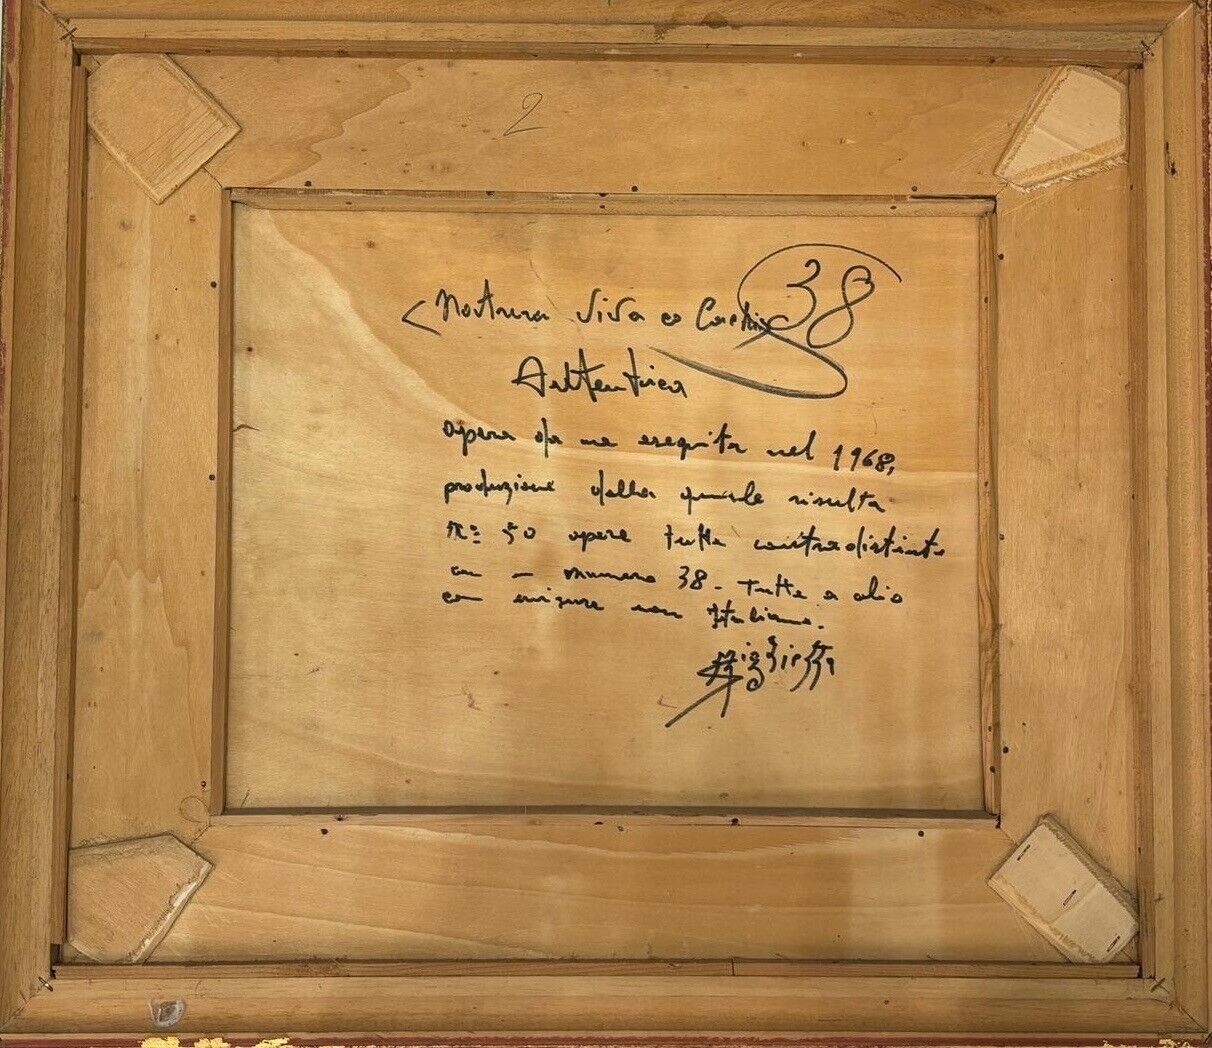 2
38
< Natura Viva
Autentica
opera da me eseguita nel 1968,
produzione della quale risulta
n:º 50 opere tutte contradistinte
numero 38 - Tutte a olio
con non Italiana.